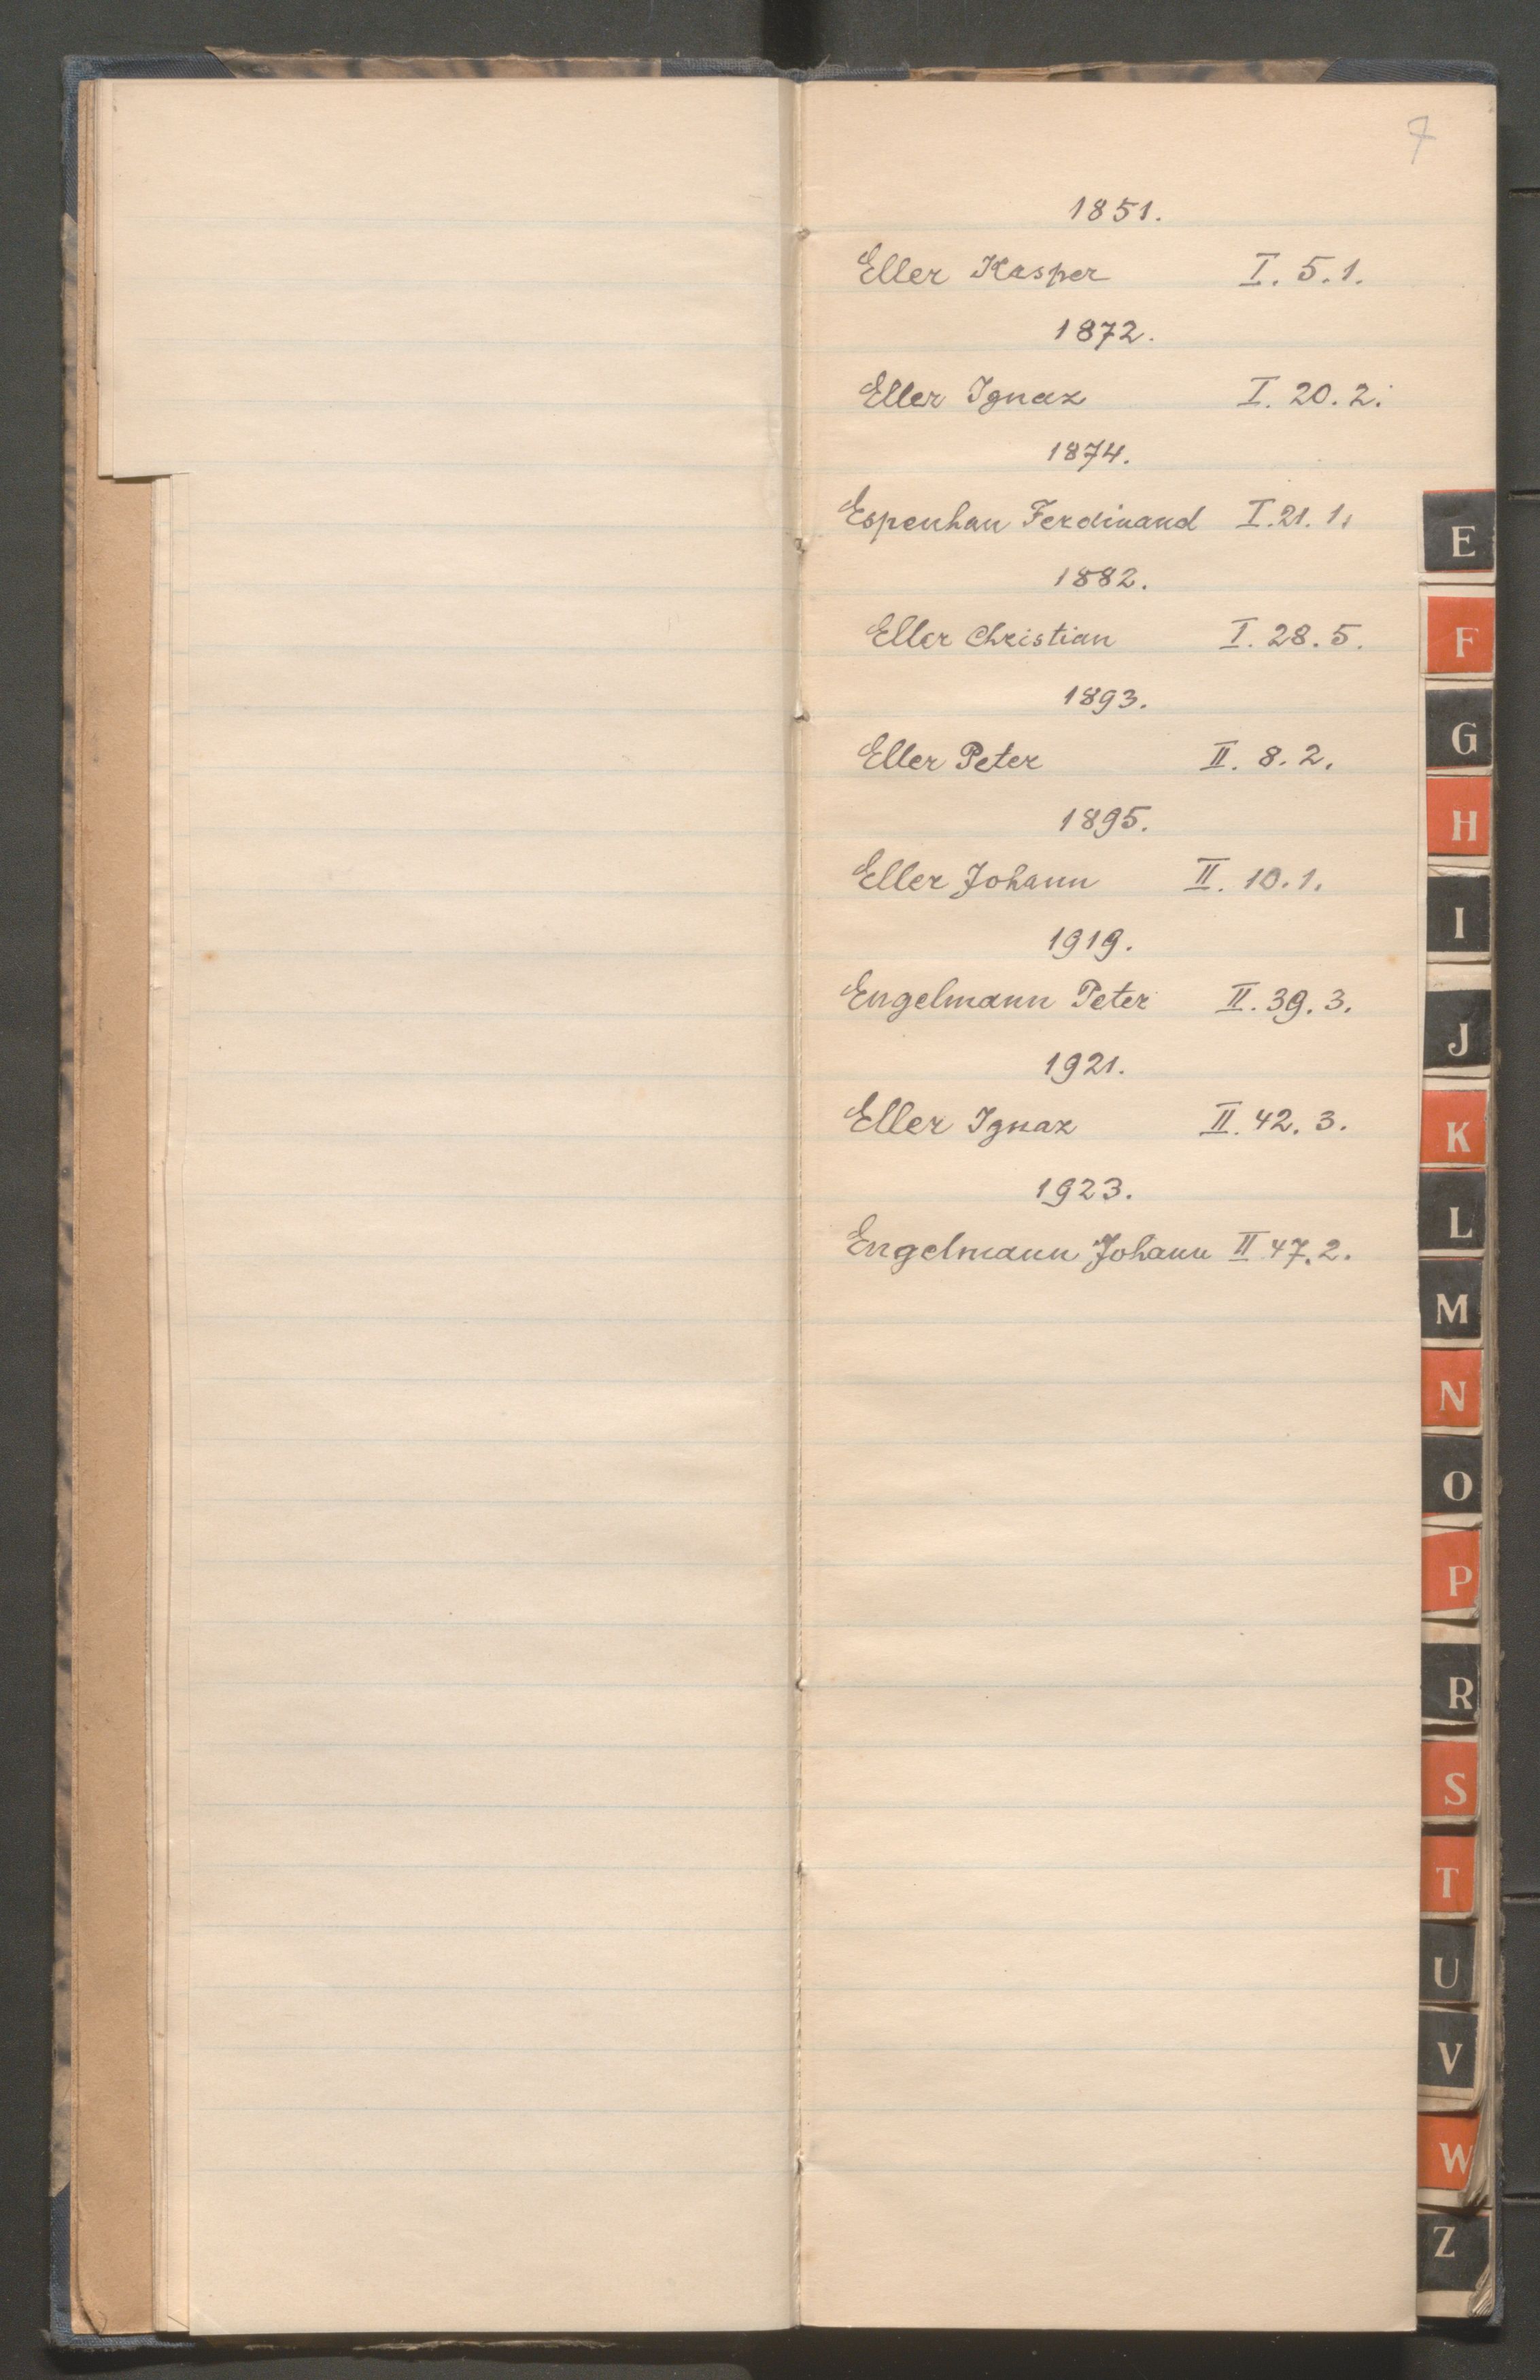 7
1851.
Eller Kasper I. 5. 1.
1872.
Eller Ignaz I. 20. 2.
1874.
Espenhan Ferdinand I. 21. 1.
1882.
Eller Christian I. 28. 5.
1893.
Eller Peter II. 8. 2.
1895.
Eller Johann II. 10. 1.
1919.
Engelmann Peter II. 39. 3.
1921.
Eller Ignaz II. 42. 3.
1923.
Engelmann Johann II 47. 2.
E
F
G
H
I
J
K
L
M
N
O
P
R
S
T
U
V
W
Z